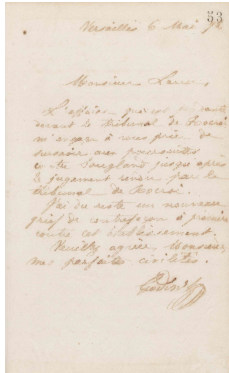 53
Versailles 6 Mai 72
Monsieur Larue,
L'affaire qui est
devant le Tribunal de Rocroi
m'engage à vous prier de
surseoir aux poursuites
jusqu'après
le jugement rendu par le
tribunal de Rocroi.
J'ai du reste un nouveau
grief de contrefaçon à
contre cet établissement.
Veuillez agréer, Monsieur,
mes parfaites civilités.
Godin